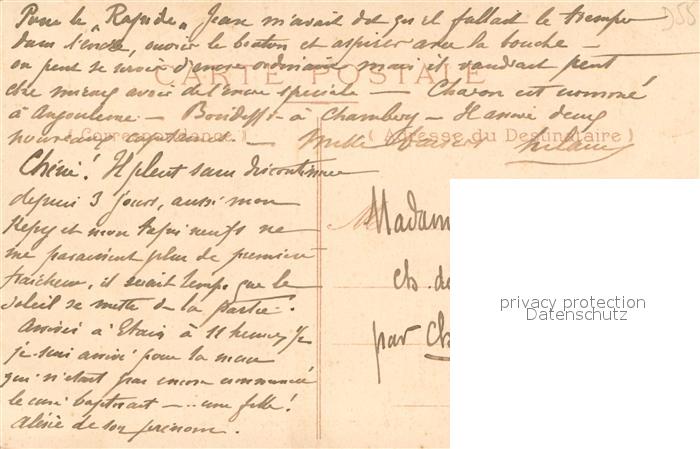 Pour le "Rapide", Jean m'avait dit qu'il fallait le tremper
dans l'encre, ouvrir le bouton et aspirer avec la bouche –
on peut se servir d'encre ordinaire mais il vaudrait peut
CARTE POSTALE
être mieux avoir de l'encre spéciale – Charon est nommé
à Angoulême – à Chambery – Il arrive deux
nouveaux capitaines. – Mille
(Correspondance) (Adresse du Destinataire)
Chérie! Il pleut sans discontinuer
depuis 3 jours, aussi mon
Képy et mon képi neufs ne
me paraissent plus de première
fraîcheur, il serait temps que le
soleil se mette de la partie.
Arrivés à Etain à 11 heures 1/2
je suis arrivé pour la messe
qui n'était pas encore commencée
le curé baptisait – .. une fille!
Alésie de son prénom.
Madam
ch. de
par Ch
privacy protection
Datenschutz